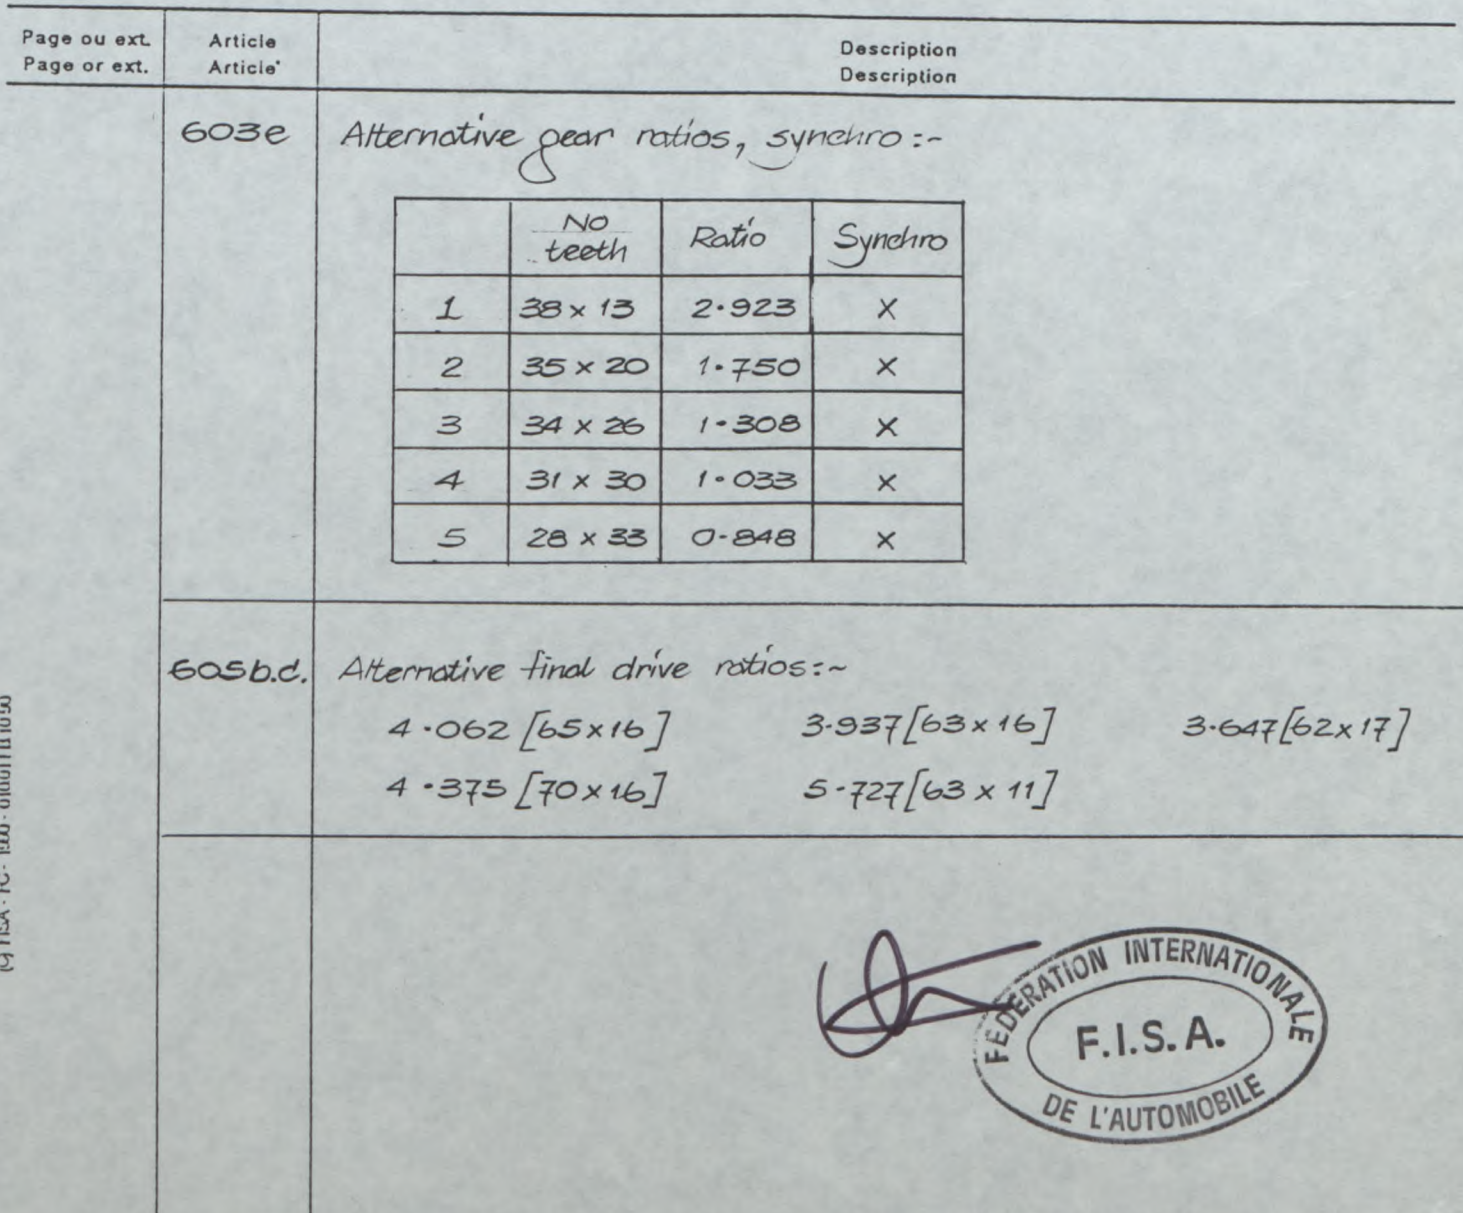 Page ou ext. Article Description
Page or ext. Article Description
603e Alternative gear ratios, synchro:-
No teeth Ratio Synchro
1 38 x 13 2.923 X
2 35 x 20 1.750 X
3 34 x 26 1.308 X
4 31 x 30 1.033 X
5 28 x 33 0.848 X
605b.d. Alternative final drive ratios:~
4.062 [65x16] 3.937 [63x16] 3.647 [62x17]
4.375 [70x16] 5.727 [63 x 11]
FEDERATION INTERNATIONALE
F.I.S.A.
DE L'AUTOMOBILE